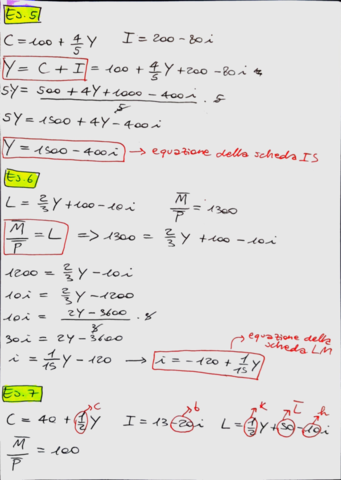 Es. 5
C = 100 + 4/5 Y    I = 200 - 80i
Y = C + I = 100 + 4/5 Y + 200 - 80i
5Y = (500 + 4Y + 1000 - 400i)/5 · 5
5Y = 1500 + 4Y - 400i
Y = 1500 - 400i → equazione della scheda IS
Es. 6
L = 2/3 Y + 100 - 10i    M̅/P = 1300
M̅/P = L => 1300 = 2/3 Y + 100 - 10i
1200 = 2/3 Y - 10i
10i = 2/3 Y - 1200
10i = (2Y - 3600)/3 · 3
30i = 2Y - 3600
equazione della scheda LM
i = 1/15 Y - 120 → i = -120 + 1/15 Y
Es. 7
c    b    k    L̅    h
C = 40 + 1/2 Y    I = 13 - 20i    L = 1/2 Y + 50 - 10i
M̅/P = 100